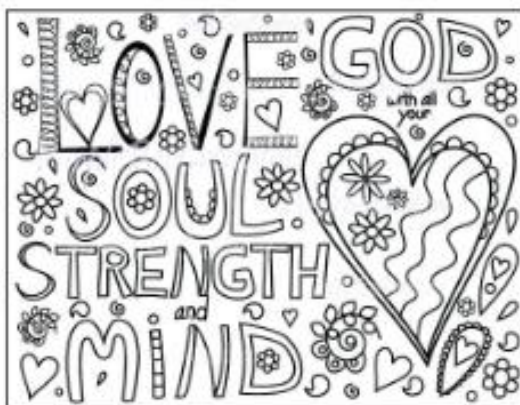 LOVE GOD
with all
your
SOUL
STRENGTH
and
MIND